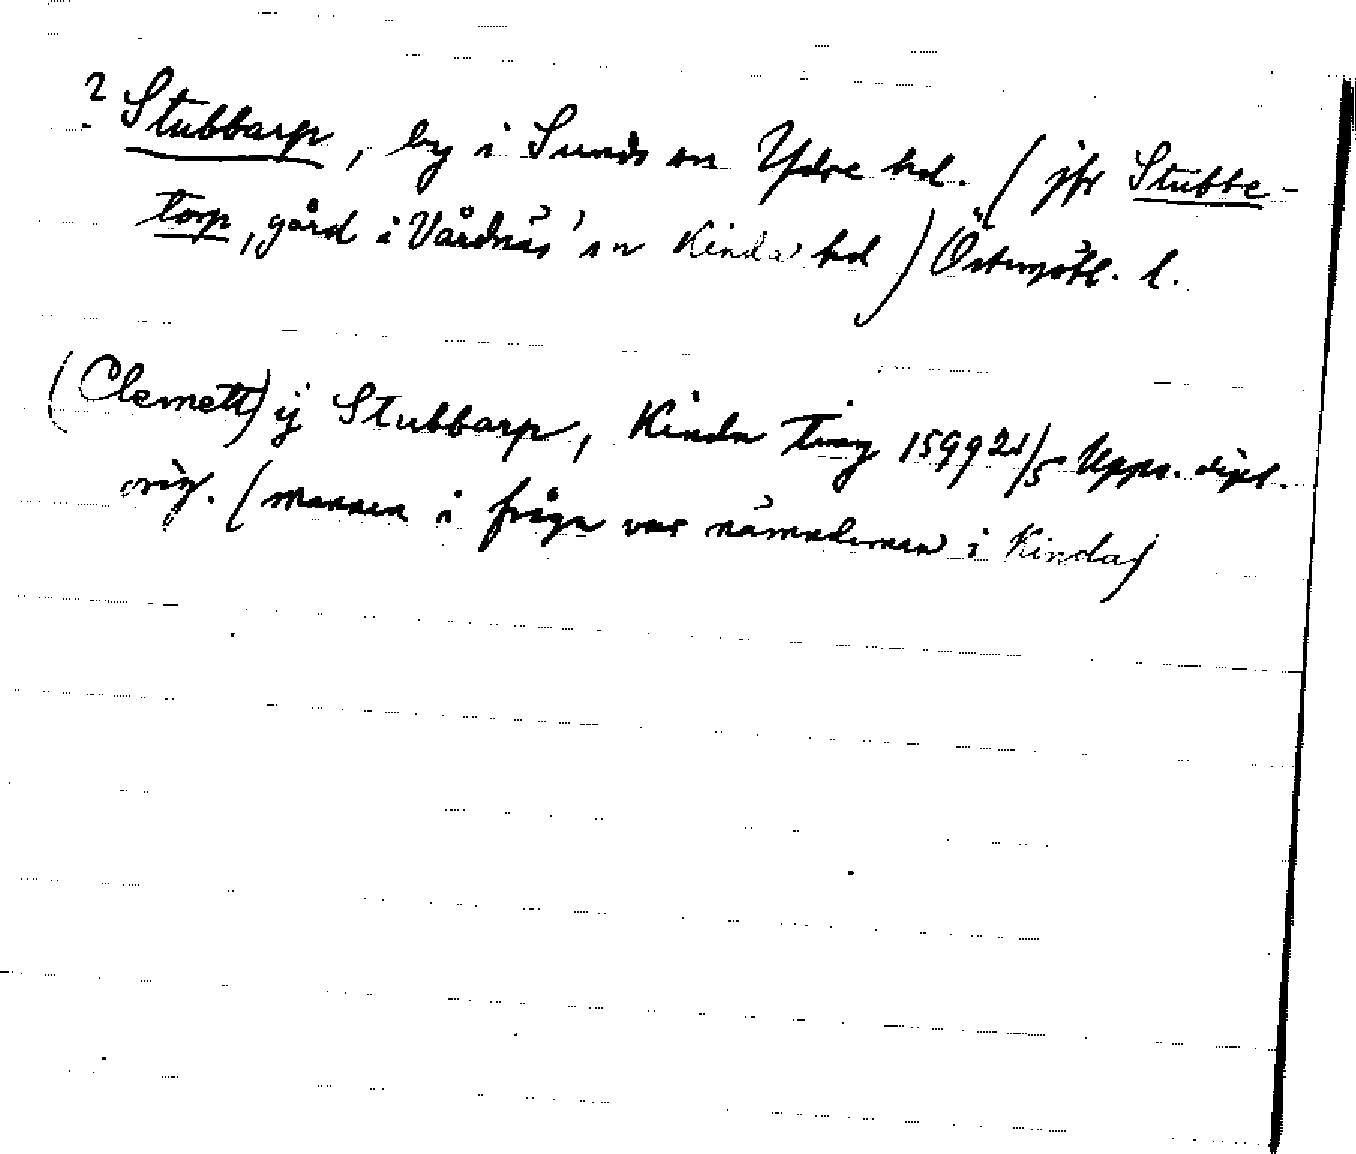 ? Stubbarp, by i Sunds sn Ydre hd. (jfr Stubbe-
torp, gård i Vårdnäs sn Kinda hd) Östergötl. l.
(Clemett) ij Stubbarp, Kinda ting 1599 21/5 Upps. dipl.
orig. (mannen i fråga var nämndeman i Kinda)